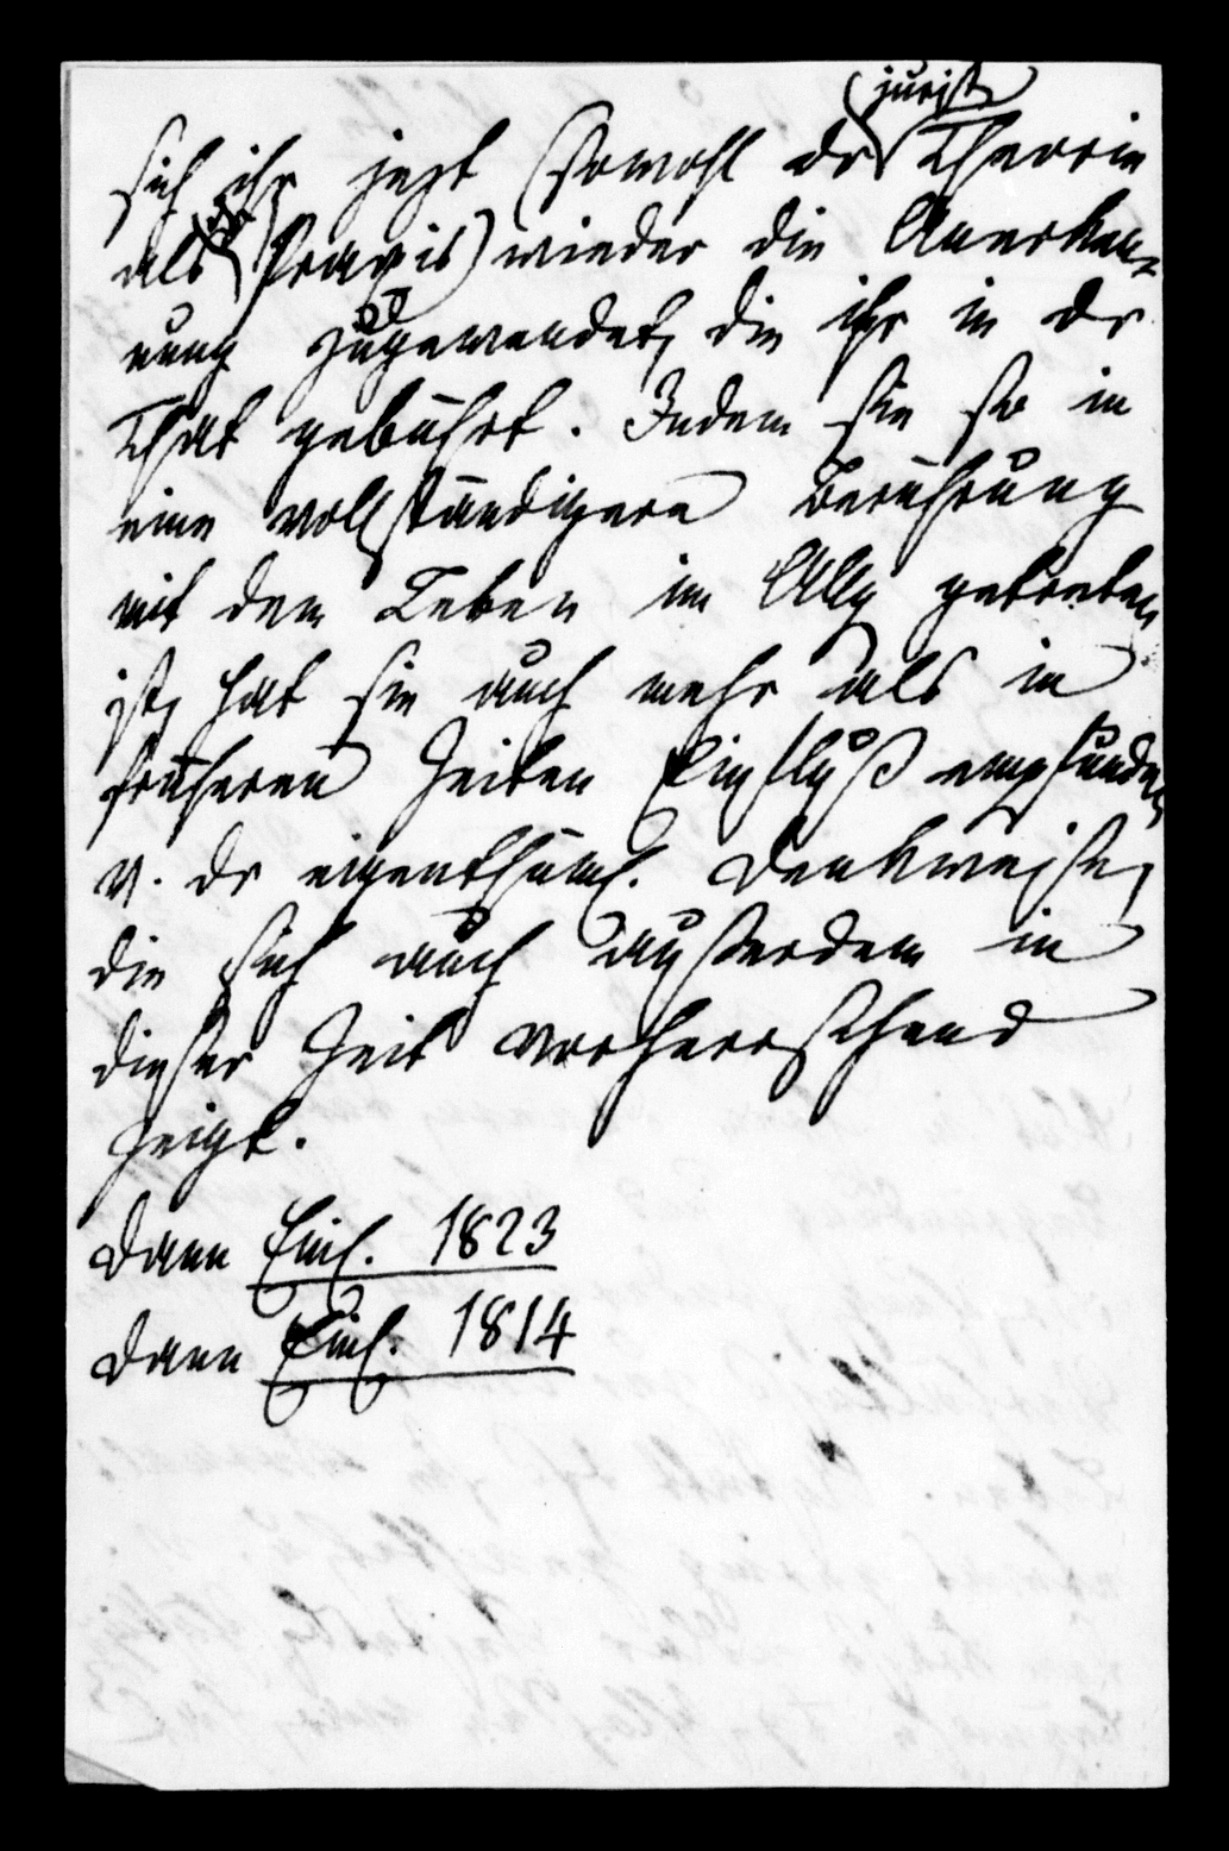 jurist
sich ihr jezt (sowohl dr Theorie
als dr Praxis) wieder die Anerken=
nung zugewendet, die ihr in dr
That gebührt. Indem sie so in
eine vollständigere Berührung
mit dem Leben im Allg getreten
ist, hat sie auch mehr als in
früheren Zeiten Einfluß empfunden
v. dr eigenthüml. Denkweise,
die sich auch außerdem in
dieser Zeit vorherrschend
zeigt.
Dann Einl. 1823
Dann Einl. 1814